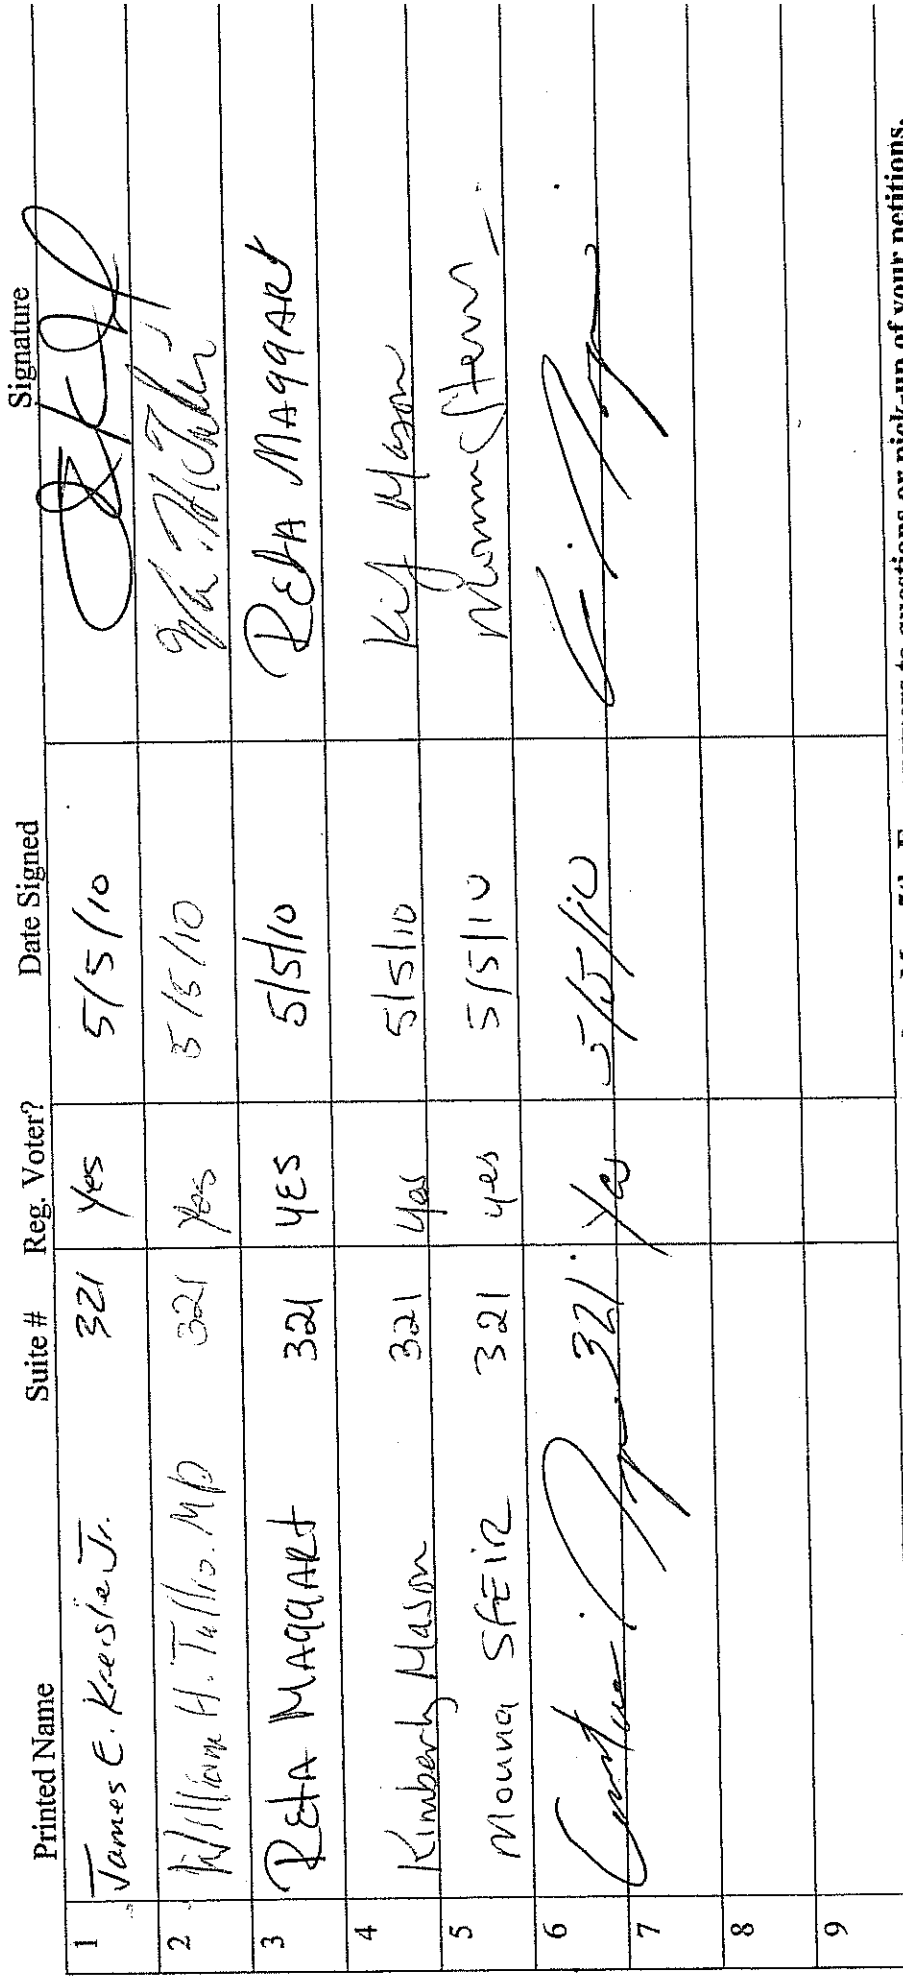 Printed Name Suite # Reg. Voter? Date Signed Signature
1 James E. Kreisle Jr. 321 Yes 5/5/10
2 William H. Tullio. MD 321 Yes 5/5/10
3 RetA MAggARt 321 YES 5/5/10 RetA MAggARt
4 Kimberly Mason 321 Yes 5/5/10 Mason
5 Mouna SFEIR 321 yes 5/5/10 Mouna
6 321 Yes 5/5/10
7
8
9
answers to questions or pick-up of your petitions.